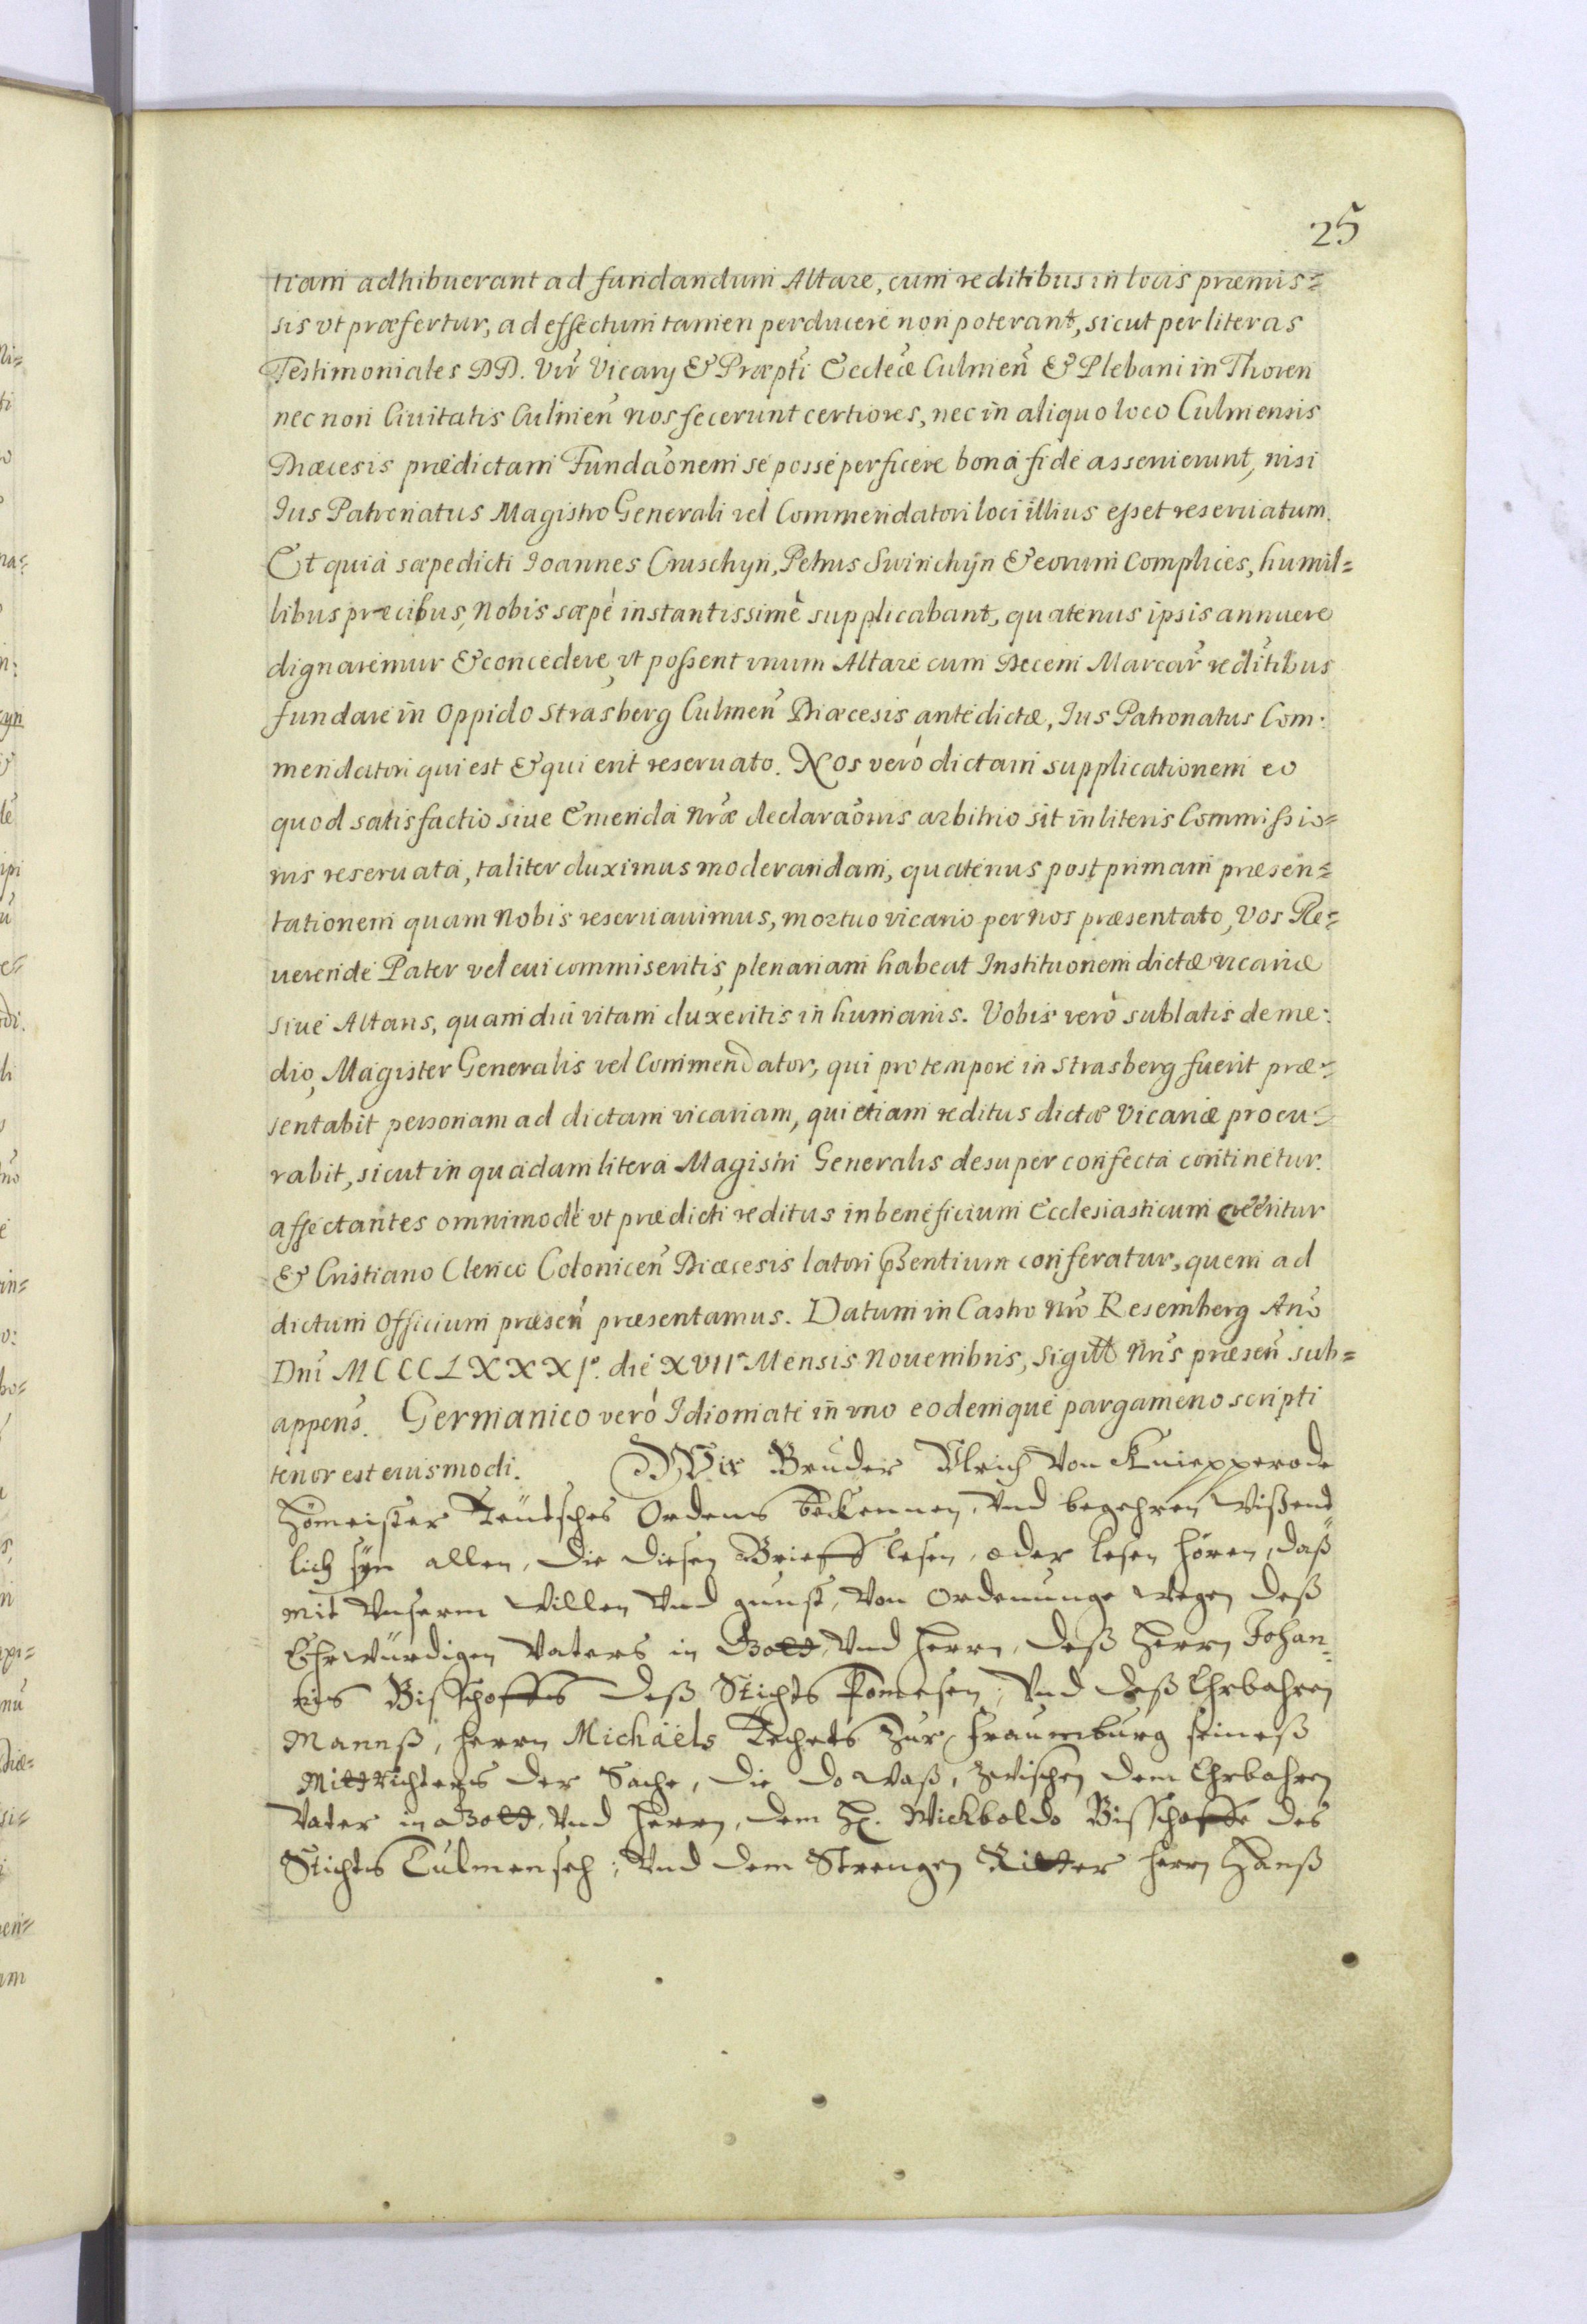 25
tiam adhibuerant ad fundandum Altare, cum reditibus in locis præmis=
sis vt præfertur, ad effectum tamen perducere non poterant, sicut per literas
Testimoniales DD. Vir̃ Vicarij & Præpti Eccleæ Culmen̄ & Plebani in Thoren
nec non Ciuitatis Culmen̄ nos fecerunt certiores, nec in aliquo loco Culmensis
Diæcesis prædictam Fundaõnem se posse perficere bona fide asseruerunt, nisi
Ius Patronatus Magistro Generali vel Commendatori loci illius esset reseruatum.
Et quia sæpedicti Ioannes Cruschyn, Petrus Swinchijn & eorum Complices, humil=
libus præcibus, Nobis sæpè instantissimè supplicabant, quatenus ipsis annuere
dignaremur & concedere, vt possent vnum Altare cum Decem Marcar̃ reditibus
fundare in Oppido Strasberg Culmen̄ Diæcesis antedictæ, Ius Patronatus Com:
mendatori qui est & qui erit reseruato. Nos verò dictam supplicationem eo
quod satisfactio siue Emenda nr̃æ declaraõnis arbitrio sit in literis Commissio=
nis reseruata, taliter duximus moderandam, quatenus post primam præsen=
tationem quam Nobis reseruauimus, mortuo vicario per nos præsentato, Vos Re=
uerende Pater vel cui commiseritis, plenariam habeat Instituonem dictæ vicariæ
siue Altaris, quamdiu vitam duxeritis in humanis. Vobis verò sublatis de me:
dio, Magister Generalis vel Commendator, qui pro tempore in Strasberg fuerit præ=
sentabit personam ad dictam vicariam, qui etiam reditus dictæ Vicariæ procu=
rabit, sicut in quadam litera Magistri Generalis desuper confecta continetur.
affectantes omnimodè vt prædicti reditus in beneficium Ecclesiasticum creentur
& Cristiano Clerico Colonicen̄ Diæcesis latori p̃sentium conferatur, quem ad
dictum Officium præsen̄ præsentamus. Datum in Castro nr̃o Resemberg Ano
Dni MCCCLXXXIº. die XVIIª Mensis Nouembris, sigill nris præsen̄ sub=
appens. Germanico verò Idiomate in vno eodemque pargameno scripti
tenor est eiusmodi. Wir Bruder Ulrich Von Kniepperode
Homeister Teutsches Ordens bekennen, Vnd begehren Wißend
lich syn allen, die diesen Brieff lesen, oder lesen hören, daß
mit Vnserm Willen Vnd gunst, Von Ordenunge Wegen deß
EhrWürdigen Vaters in Gott, Vnd Herrn, deß Herrn Johan=
nis Bisschoffes deß Stichts Pomesen, Vnd deß Ehrbahren
Mannß, Herrn Michaëls Techets zur Frauenburg seineß
Mittrichters der Sache, die do Waß, zwischen dem Ehrbahren
Vater in Gott, Vnd Herrn, dem H. Wickboldo Bisschoffe des
Stichts Culmenseh; Vnd dem Strengen Ritter Herrn Hanß